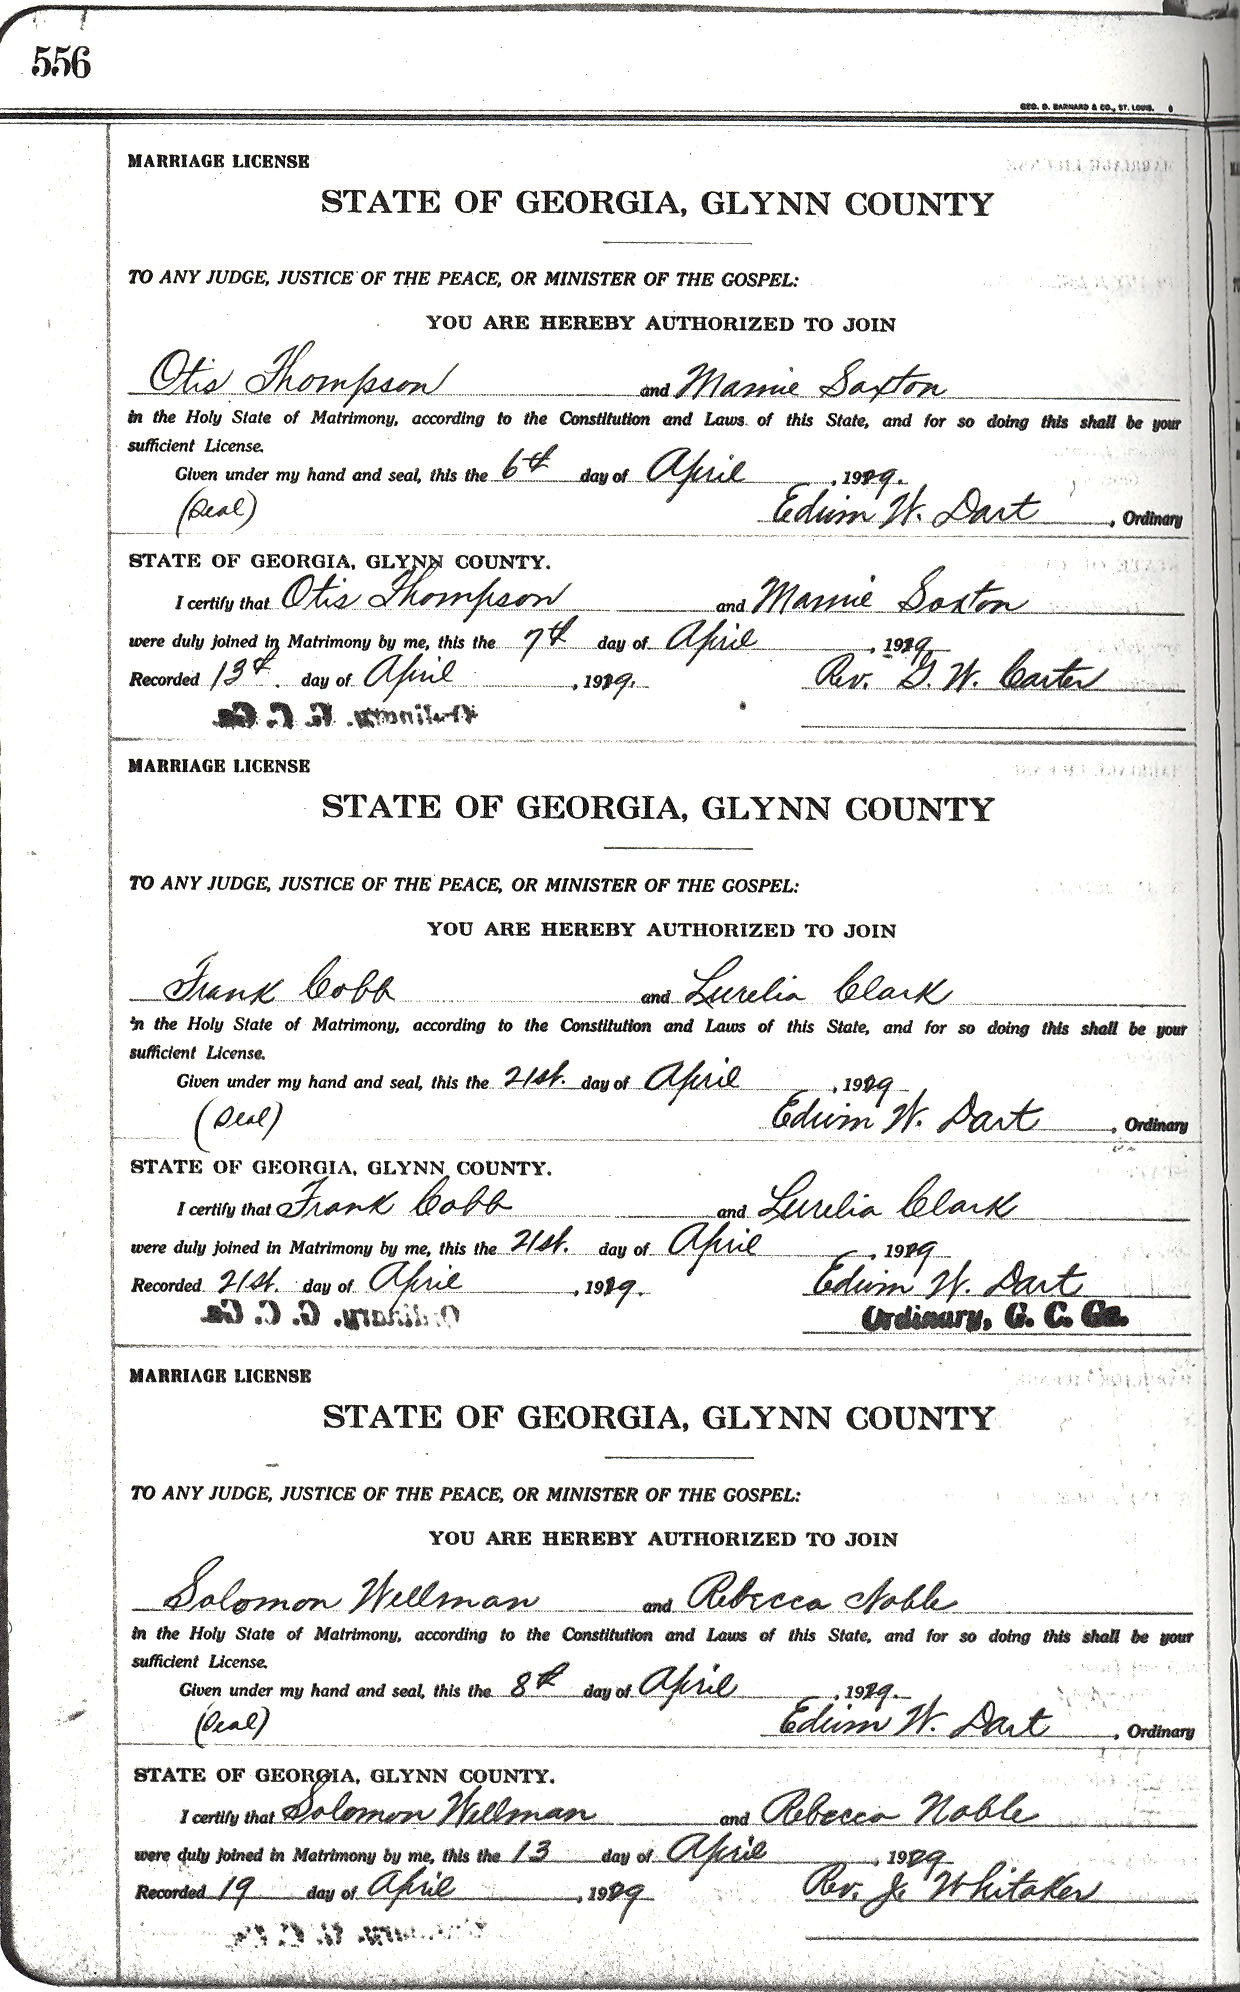 556
GEO. D. BARNARD & CO., ST. LOUIS. 6
MARRIAGE LICENSE
STATE OF GEORGIA, GLYNN COUNTY
TO ANY JUDGE, JUSTICE OF THE PEACE, OR MINISTER OF THE GOSPEL:
YOU ARE HEREBY AUTHORIZED TO JOIN
Otis Thompson and Mamie Saxton
in the Holy State of Matrimony, according to the Constitution and Laws of this State, and for so doing this shall be your
sufficient License.
Given under my hand and seal, this the 6th day of April, 1929.
(Seal) Edwin W. Dart, Ordinary
STATE OF GEORGIA, GLYNN COUNTY.
I certify that Otis Thompson and Mamie Saxton
were duly joined in Matrimony by me, this the 7th day of April, 1929
Recorded 13th. day of April, 1929. Rev. G. W. Carter
Ordinary, G. C. Ga.
MARRIAGE LICENSE
STATE OF GEORGIA, GLYNN COUNTY
TO ANY JUDGE, JUSTICE OF THE PEACE, OR MINISTER OF THE GOSPEL:
YOU ARE HEREBY AUTHORIZED TO JOIN
Frank Cobb and Lurelia Clark
in the Holy State of Matrimony, according to the Constitution and Laws of this State, and for so doing this shall be your
sufficient License.
Given under my hand and seal, this the 21st. day of April, 1929
(Seal) Edwin W. Dart, Ordinary
STATE OF GEORGIA, GLYNN COUNTY.
I certify that Frank Cobb and Lurelia Clark
were duly joined in Matrimony by me, this the 21st. day of April, 1929
Recorded 21st. day of April, 1929. Edwin W. Dart
Ordinary, G. C. Ga. Ordinary, G. C. Ga.
MARRIAGE LICENSE
STATE OF GEORGIA, GLYNN COUNTY
TO ANY JUDGE, JUSTICE OF THE PEACE, OR MINISTER OF THE GOSPEL:
YOU ARE HEREBY AUTHORIZED TO JOIN
Solomon Wellman and Rebecca Noble
in the Holy State of Matrimony, according to the Constitution and Laws of this State, and for so doing this shall be your
sufficient License.
Given under my hand and seal, this the 8th day of April, 1929.
(Seal) Edwin W. Dart, Ordinary
STATE OF GEORGIA, GLYNN COUNTY.
I certify that Solomon Wellman and Rebecca Noble
were duly joined in Matrimony by me, this the 13 day of April, 1929
Recorded 19 day of April, 1929 Rev. J. Whitaker